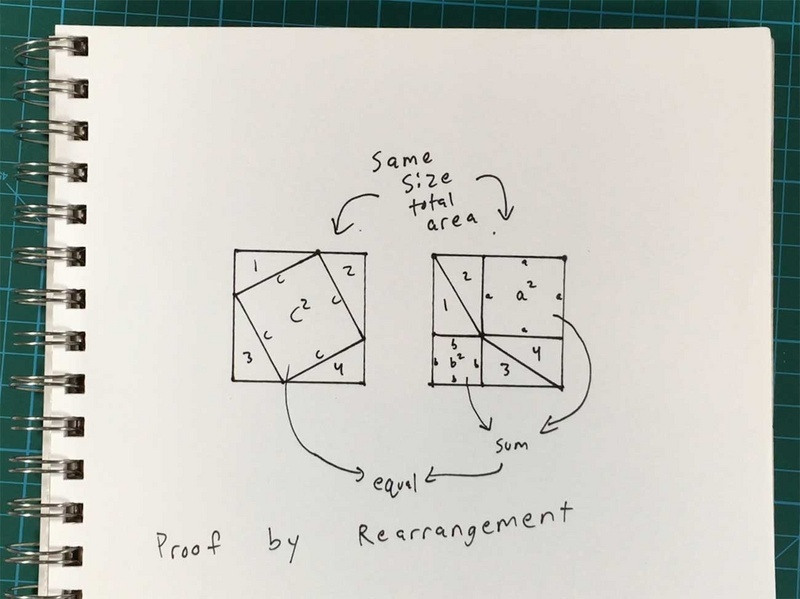 Same
size
total
area
1
2
c
c
c²
c
c
3
4
2
1
a
a
a²
a
a
b
b
b²
b
b
3
4
sum
equal
Proof by Rearrangement